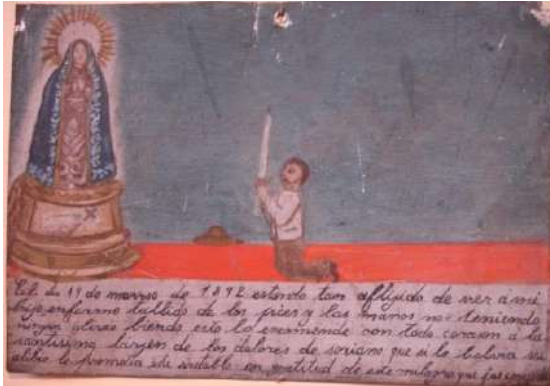 El dia 19 de marzso de 1892 estando tam aflijido de ver a mi
hijo enfermo tullido de los pies y las manos no teniendo
ningun alivio biendo esto lo encomende con todo corason a la
santissima birjen de los dolores de soriano que si le bolvia su
alibio le prometia este retablo en gratitud de este milagro que fue